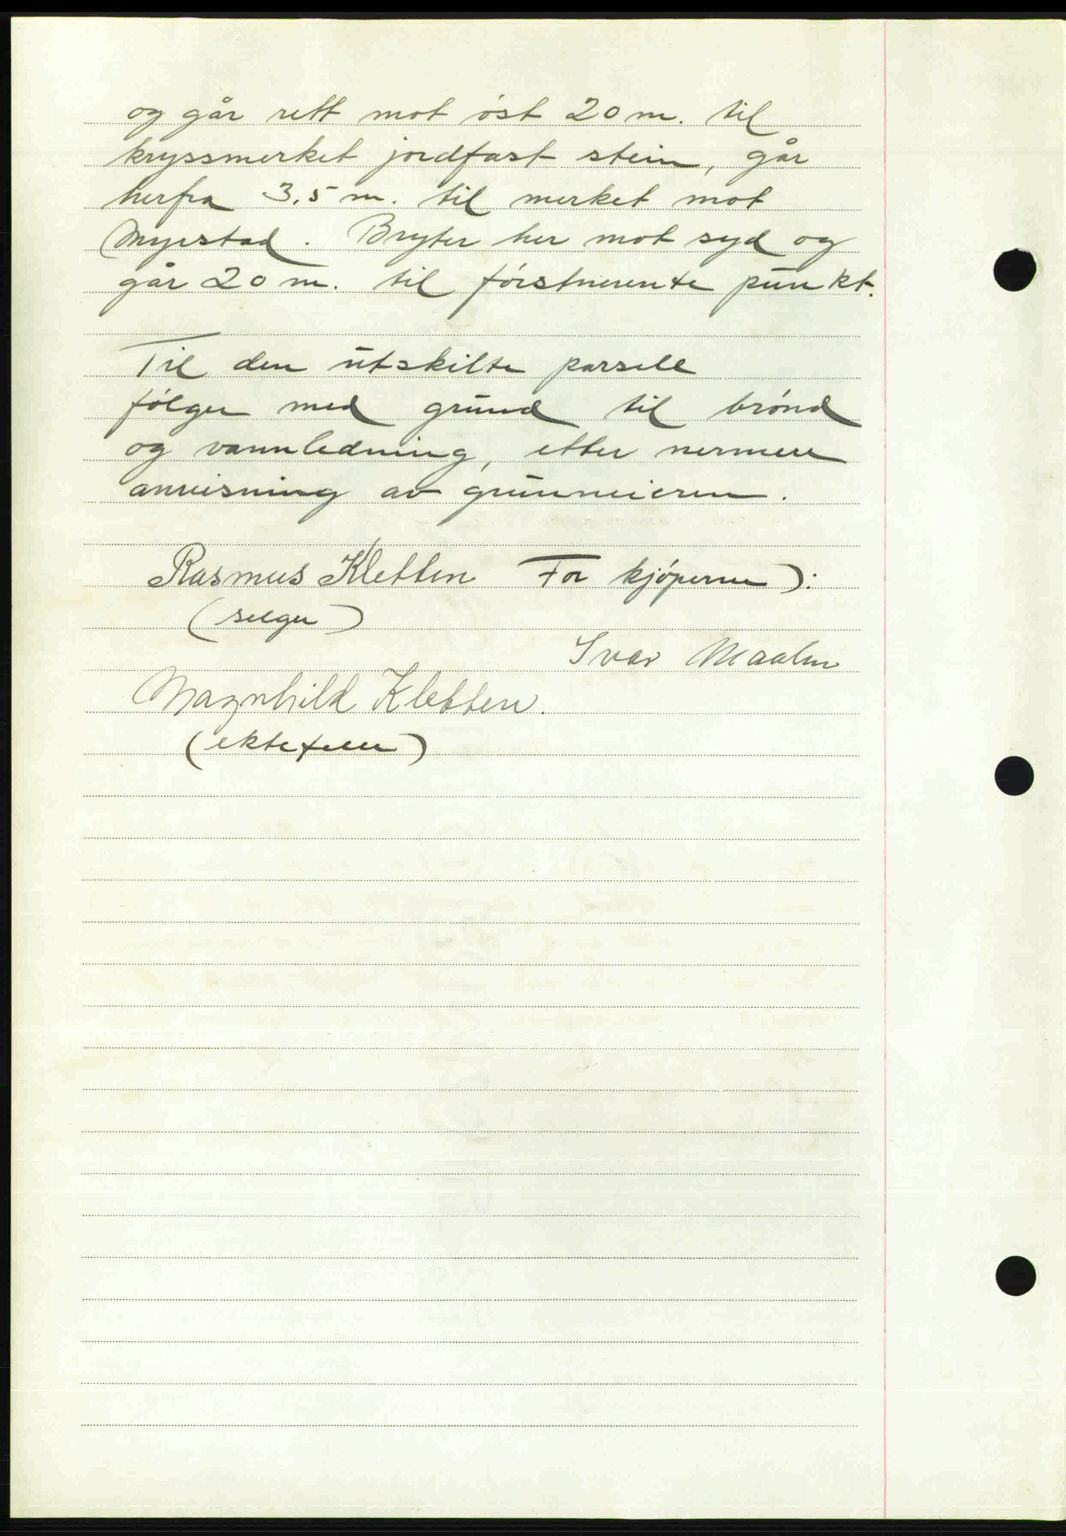 og går rett mot øst 20 m. til
kryssmerket jordfast stein, går
herfra 3,5 m. til merket mot
Myrstad. Bryter her mot syd og
går 20 m. til førstnevnte punkt.
Til den utskilte parsell
følger med grund til brønd
og vannledning, etter nermere
anvisning av grunneieren.
Rasmus Kletten For kjøperne ):
(selger)
Ivar Maalen
Magnhild Kletten.
(ektefelle)